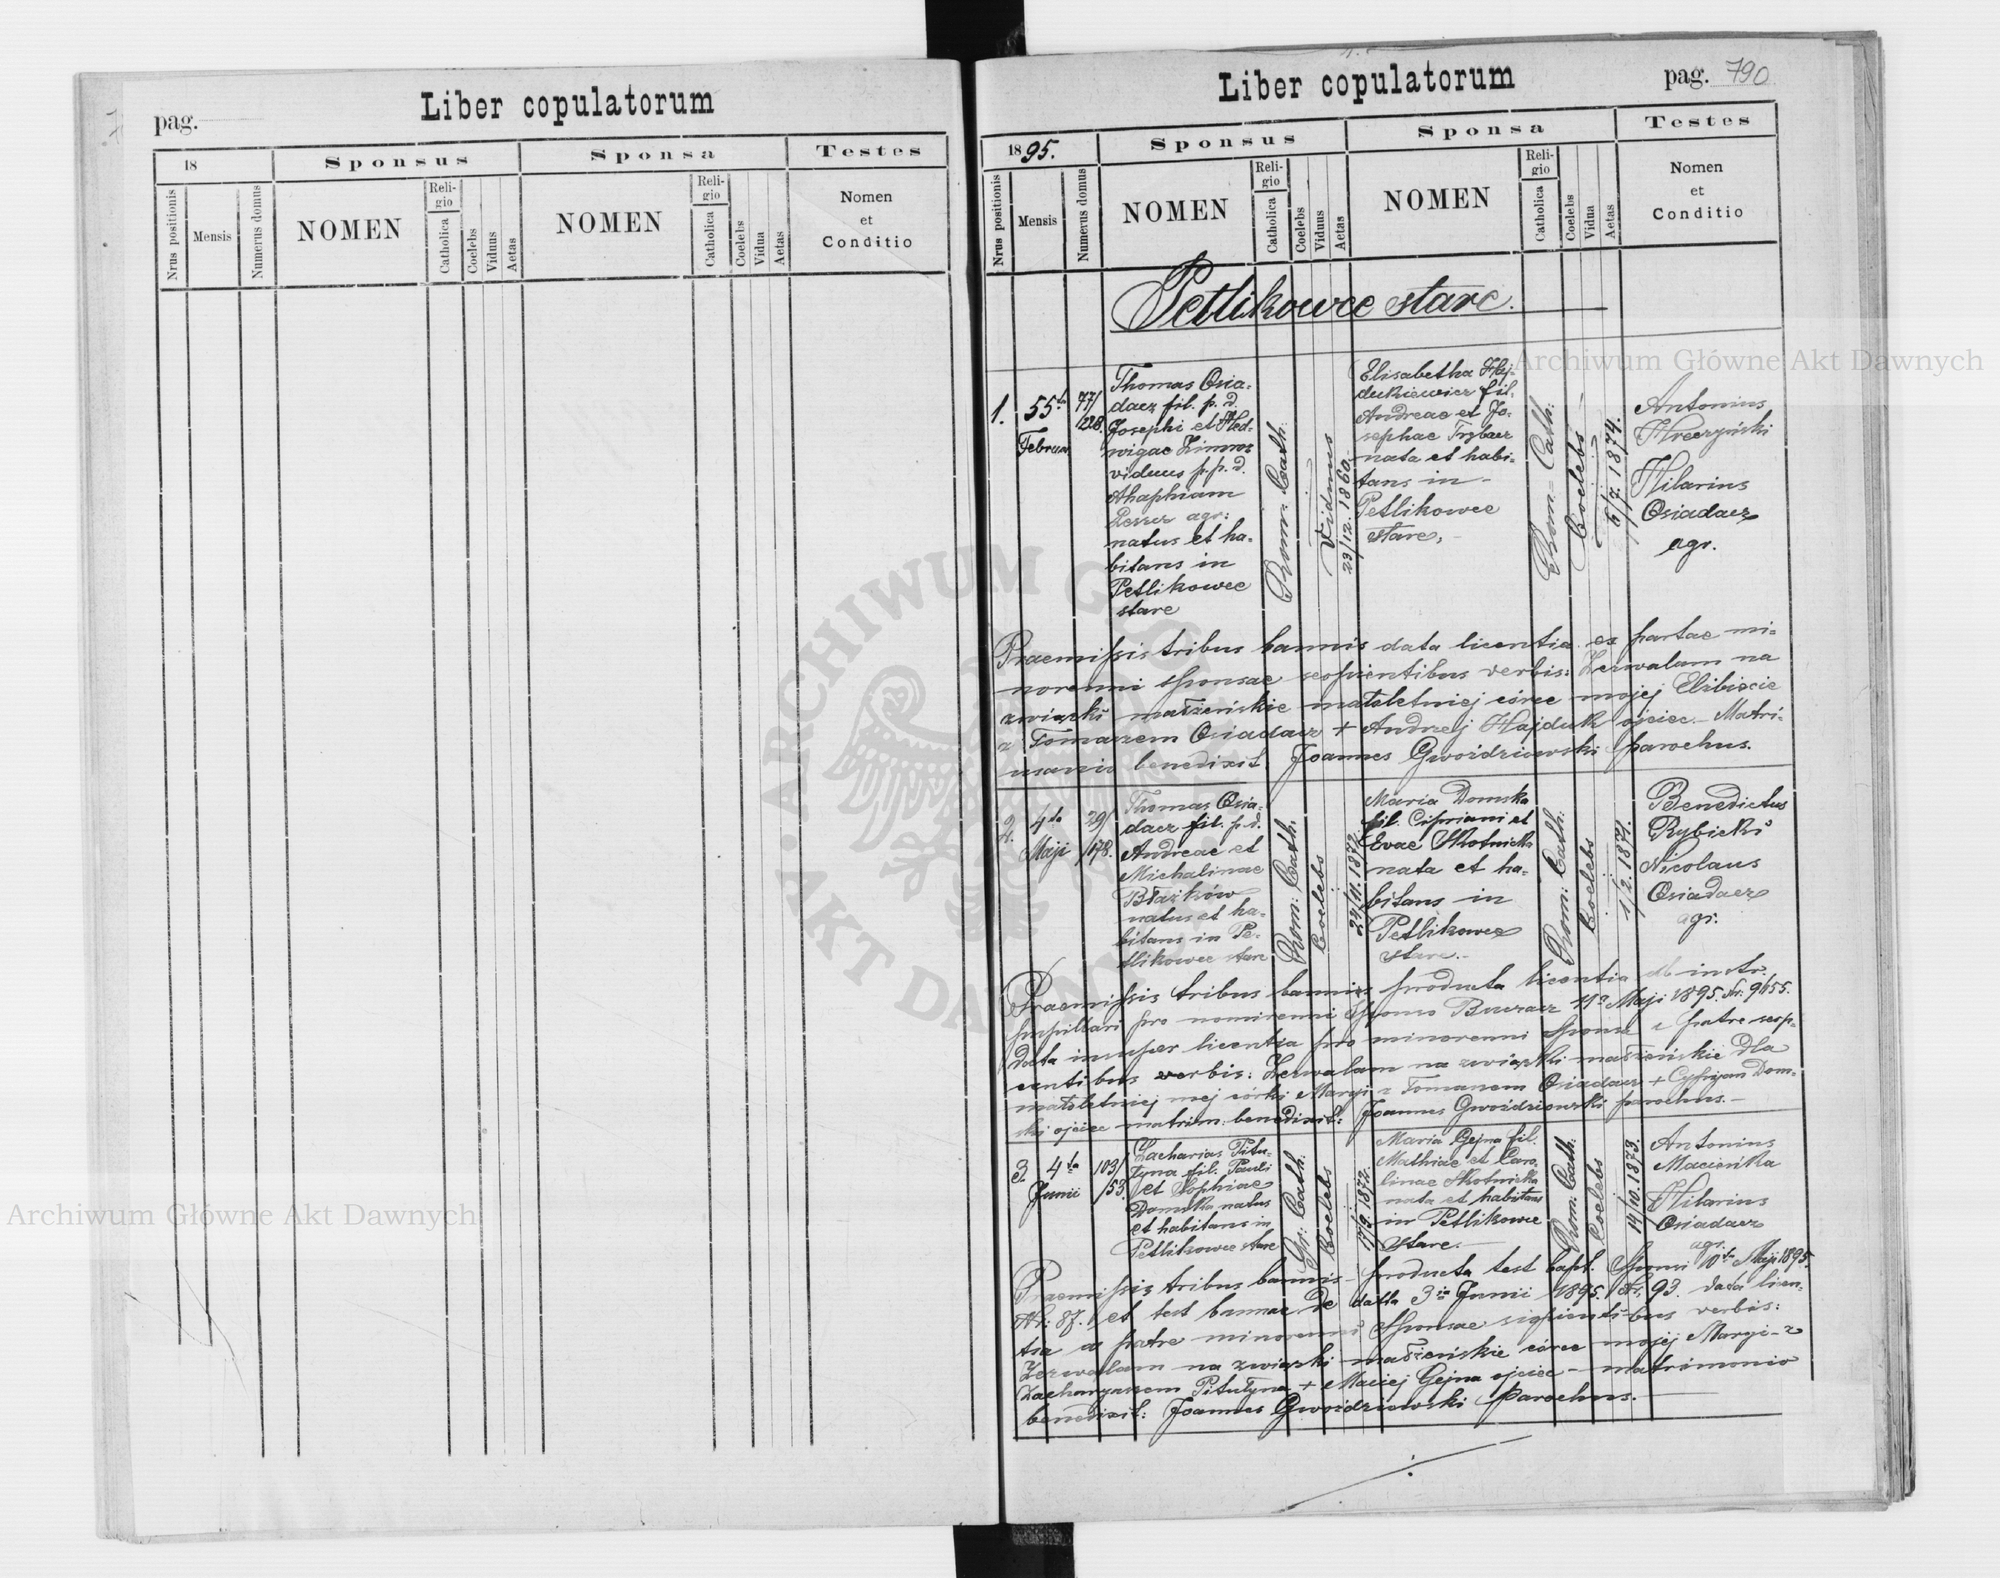 Liber copulatorum
pag.
18
Sponsus
Sponsa
Testes
Nrus positionis
Mensis
Numerus domus
NOMEN
Religio
Catholica
Coelebs
Viduus
Aetas
NOMEN
Religio
Catholica
Coelebs
Vidua
Aetas
Nomen
et
Conditio
Liber copulatorum
pag. 790
1895.
Sponsus
Sponsa
Testes
Nrus positionis
Mensis
Numerus domus
NOMEN
Reli-
gio
Catholica
Coelebs
Viduus
Aetas
NOMEN
Reli-
gio
Catholica
Coelebs
Vidua
Aetas
Nomen
et
Conditio
Petlikowce stare.
1.
Februar
77/
228.
Thomas Osia-
dacz fil. p. d.
Josephi et Hed-
wigae
viduus p. p. d.
Ahaphiam
agr:
natus et ha-
bitans in
Petlikowce
stare
Rom: Cath:
Viduus
23/12. 1860.
Elisabetha Haj-
dukiewicz fil.
Andreae et Jo-
sephae Trybacz
nata et habi-
tans in
Petlikowce
stare,
Rom: Cath:
Coelebs
6/7. 1874.
Antonius
Hreczyński
Hilarius
Osiadacz
agr.
Praemissis tribus bannis data licentia ex partae mi-
norenni sponsae verbis: Zezwalam na
związki małżeńskie małoletniej córce mojej Elżbiecie
z Tomaszem Osiadacz + Andrzej Hajduk ojciec - Matri-
monio benedixit Joannes Gwoździowski parochus.
2.
4ta
Maji
29/
178.
Thomas Osia-
dacz fil. p. d.
Andreae et
Michalinae
Błażków
natus et ha-
bitans in Pe-
tlikowce stare
Rom: Cath:
Coelebs
22/11. 1872.
Maria Domska
fil. Cipriani et
Evae Słotnicka
nata et ha-
bitans in
Petlikowce
stare.-
Rom: Cath:
Coelebs
1/2. 1871.
Benedictus
Rybicki
Nicolaus
Osiadacz
agr.
Praemissis tribus bannis producta licentia ab instr.
pupillari pro sponso Buczacz Maji 1895. Nr. 9155.
Data insuper licentia pro minorenni sponsa a patre seqv-
entibus verbis: Zezwalam na związki małżeńskie dla
małoletniej mej córki Maryi z Tomaszem Osiadacz + Cypryan Dom-
ski ojciec matrim: benedixit: Joannes Gwoździowski parochus.-
3.
4ta
Junii
103/
153.
Zacharias Pitu-
łyna fil. Pauli
et Sophiae
Domska natus
et habitans in
Petlikowce stare
Gr: Cath:
Coelebs
17/9. 1872.
Maria Gejna fil.
Mathiae et Caro-
linae Słotnicka
nata et habitans
in Petlikowce
stare.-
Rom: Cath:
Coelebs
14/10. 1873.
Antonius
Macieńka
Hilarius
Osiadacz
agr.
Praemissis tribus bannis - producta test bapt. sponsi 10ta Maji 1895.
Nr: 87. et test bannae de datta 3ia Junii 1895. Nr. 93. data licen-
tia a patre minorenni sponsae verbis:
Zezwalam na związki małżeńskie córce mojej Maryi - z
Zacharyaszem Pitułyna + Maciej Gejna ojciec - matrimonio
benedixit: Joannes Gwoździowski parochus.-
Archiwum Główne Akt Dawnych
Archiwum Główne Akt Dawnych
ARCHIWUM GŁÓWNE AKT DAWNYCH